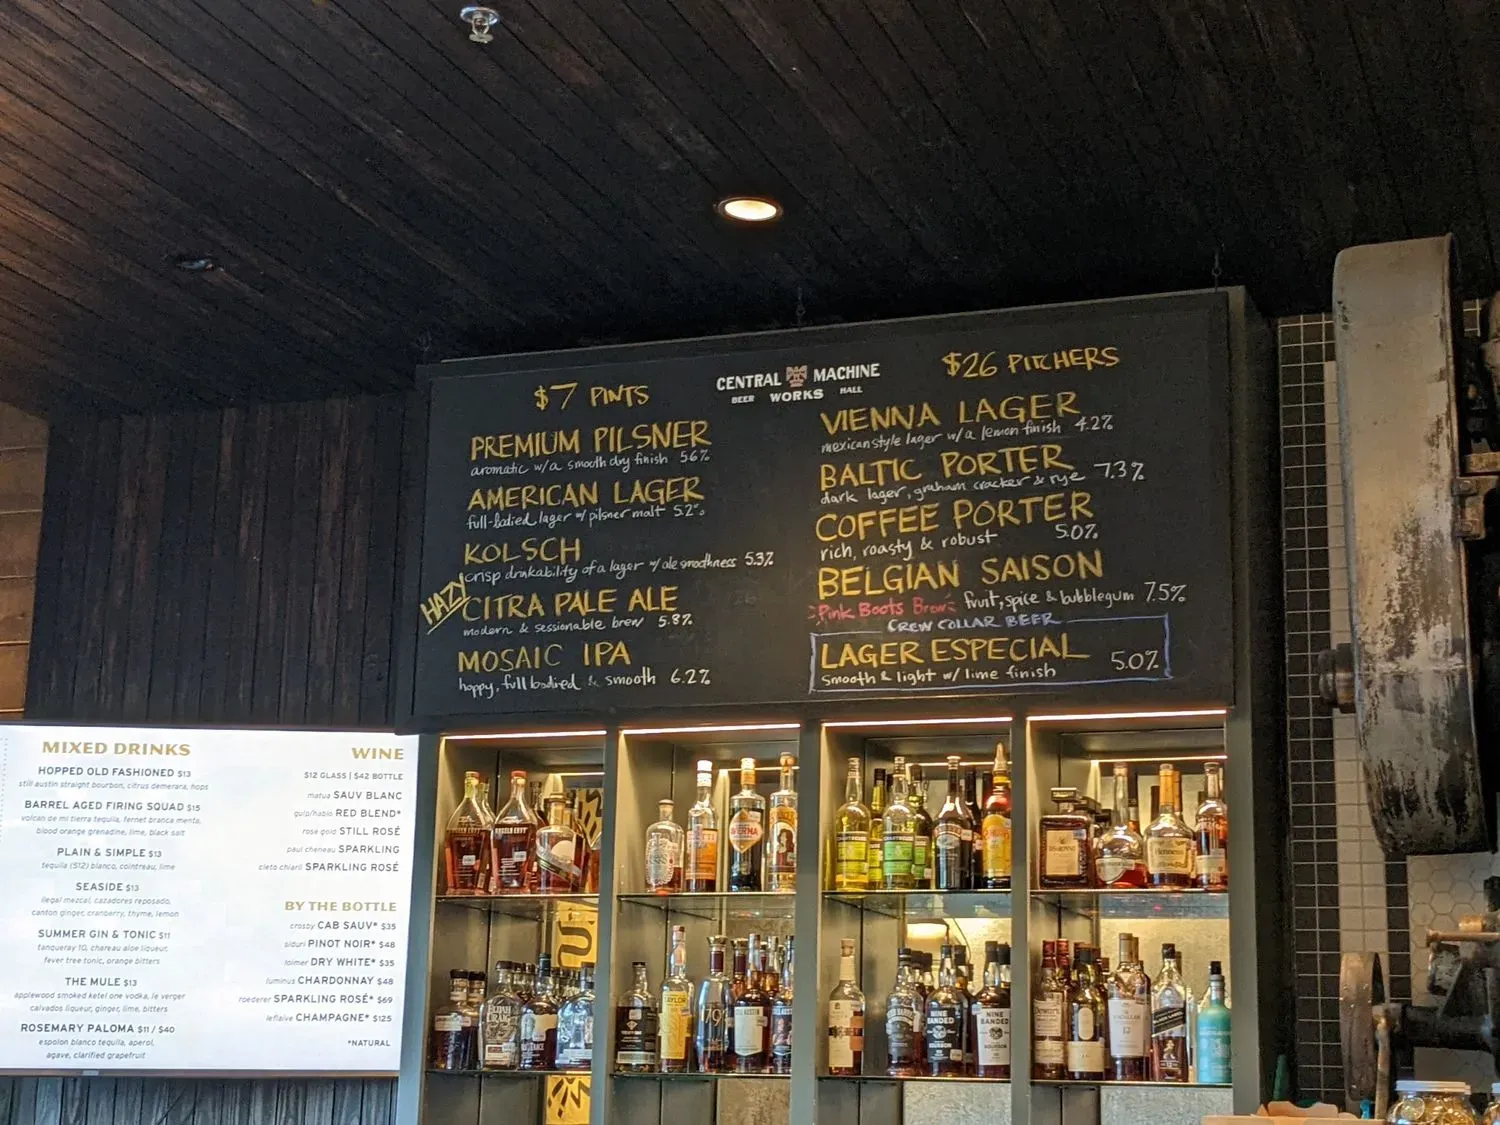 $7 PINTS
CENTRAL MACHINE
BEER WORKS HALL
$26 PITCHERS
PREMIUM PILSNER
aromatic w/a smooth dry finish 5.6%
AMERICAN LAGER
full-bodied lager w/ pilsner malt 5.2%
KOLSCH
crisp drinkability of a lager w/ ale smoothness 5.3%
HAZY
CITRA PALE ALE
modern & sessionable brew 5.8%
MOSAIC IPA
hoppy, full bodired & smooth 6.2%
VIENNA LAGER
mexican style lager w/a lemon finish 4.2%
BALTIC PORTER
dark lager, graham cracker & rye 7.3%
COFFEE PORTER
rich, roasty & robust 5.0%
BELGIAN SAISON
Pink Boots Brew fruit, spice & bubblegum 7.5%
CREW COLLAR BEER
LAGER ESPECIAL
smooth & light w/ lime finish 5.0%
MIXED DRINKS
HOPPED OLD FASHIONED $13
still austin straight bourbon, citrus demerara, hops
BARREL AGED FIRING SQUAD $15
volcan de mi tierra tequila, fernet branca menta,
blood orange grenadine, lime, black salt
PLAIN & SIMPLE $13
tequila (512) blanco, cointreau, lime
SEASIDE $13
ilegal mezcal, cazadores reposado,
canton ginger, cranberry, thyme, lemon
SUMMER GIN & TONIC $11
tanqueray 10, chareau aloe liqueur,
fever tree tonic, orange bitters
THE MULE $13
applewood smoked ketel one vodka, le verger
calvados liqueur, ginger, lime, bitters
ROSEMARY PALOMA $11 / $40
espolon blanco tequila, aperol,
agave, clarified grapefruit
WINE
$12 GLASS | $42 BOTTLE
matua SAUV BLANC
gulp/hablo RED BLEND*
rose gold STILL ROSÉ
paul cheneau SPARKLING
cleto chiarli SPARKLING ROSÉ
BY THE BOTTLE
crosby CAB SAUV* $35
siduri PINOT NOIR* $48
loimer DRY WHITE* $35
luminus CHARDONNAY $48
roederer SPARKLING ROSÉ* $69
leflaive CHAMPAGNE* $125
*NATURAL
AVERNA
Hennessy
ELIJAH CRAIG
TAYLOR
1792
NINE BANDED
BOURBON
NINE BANDED
BOURBON
Dewar's
MACALLAN
12